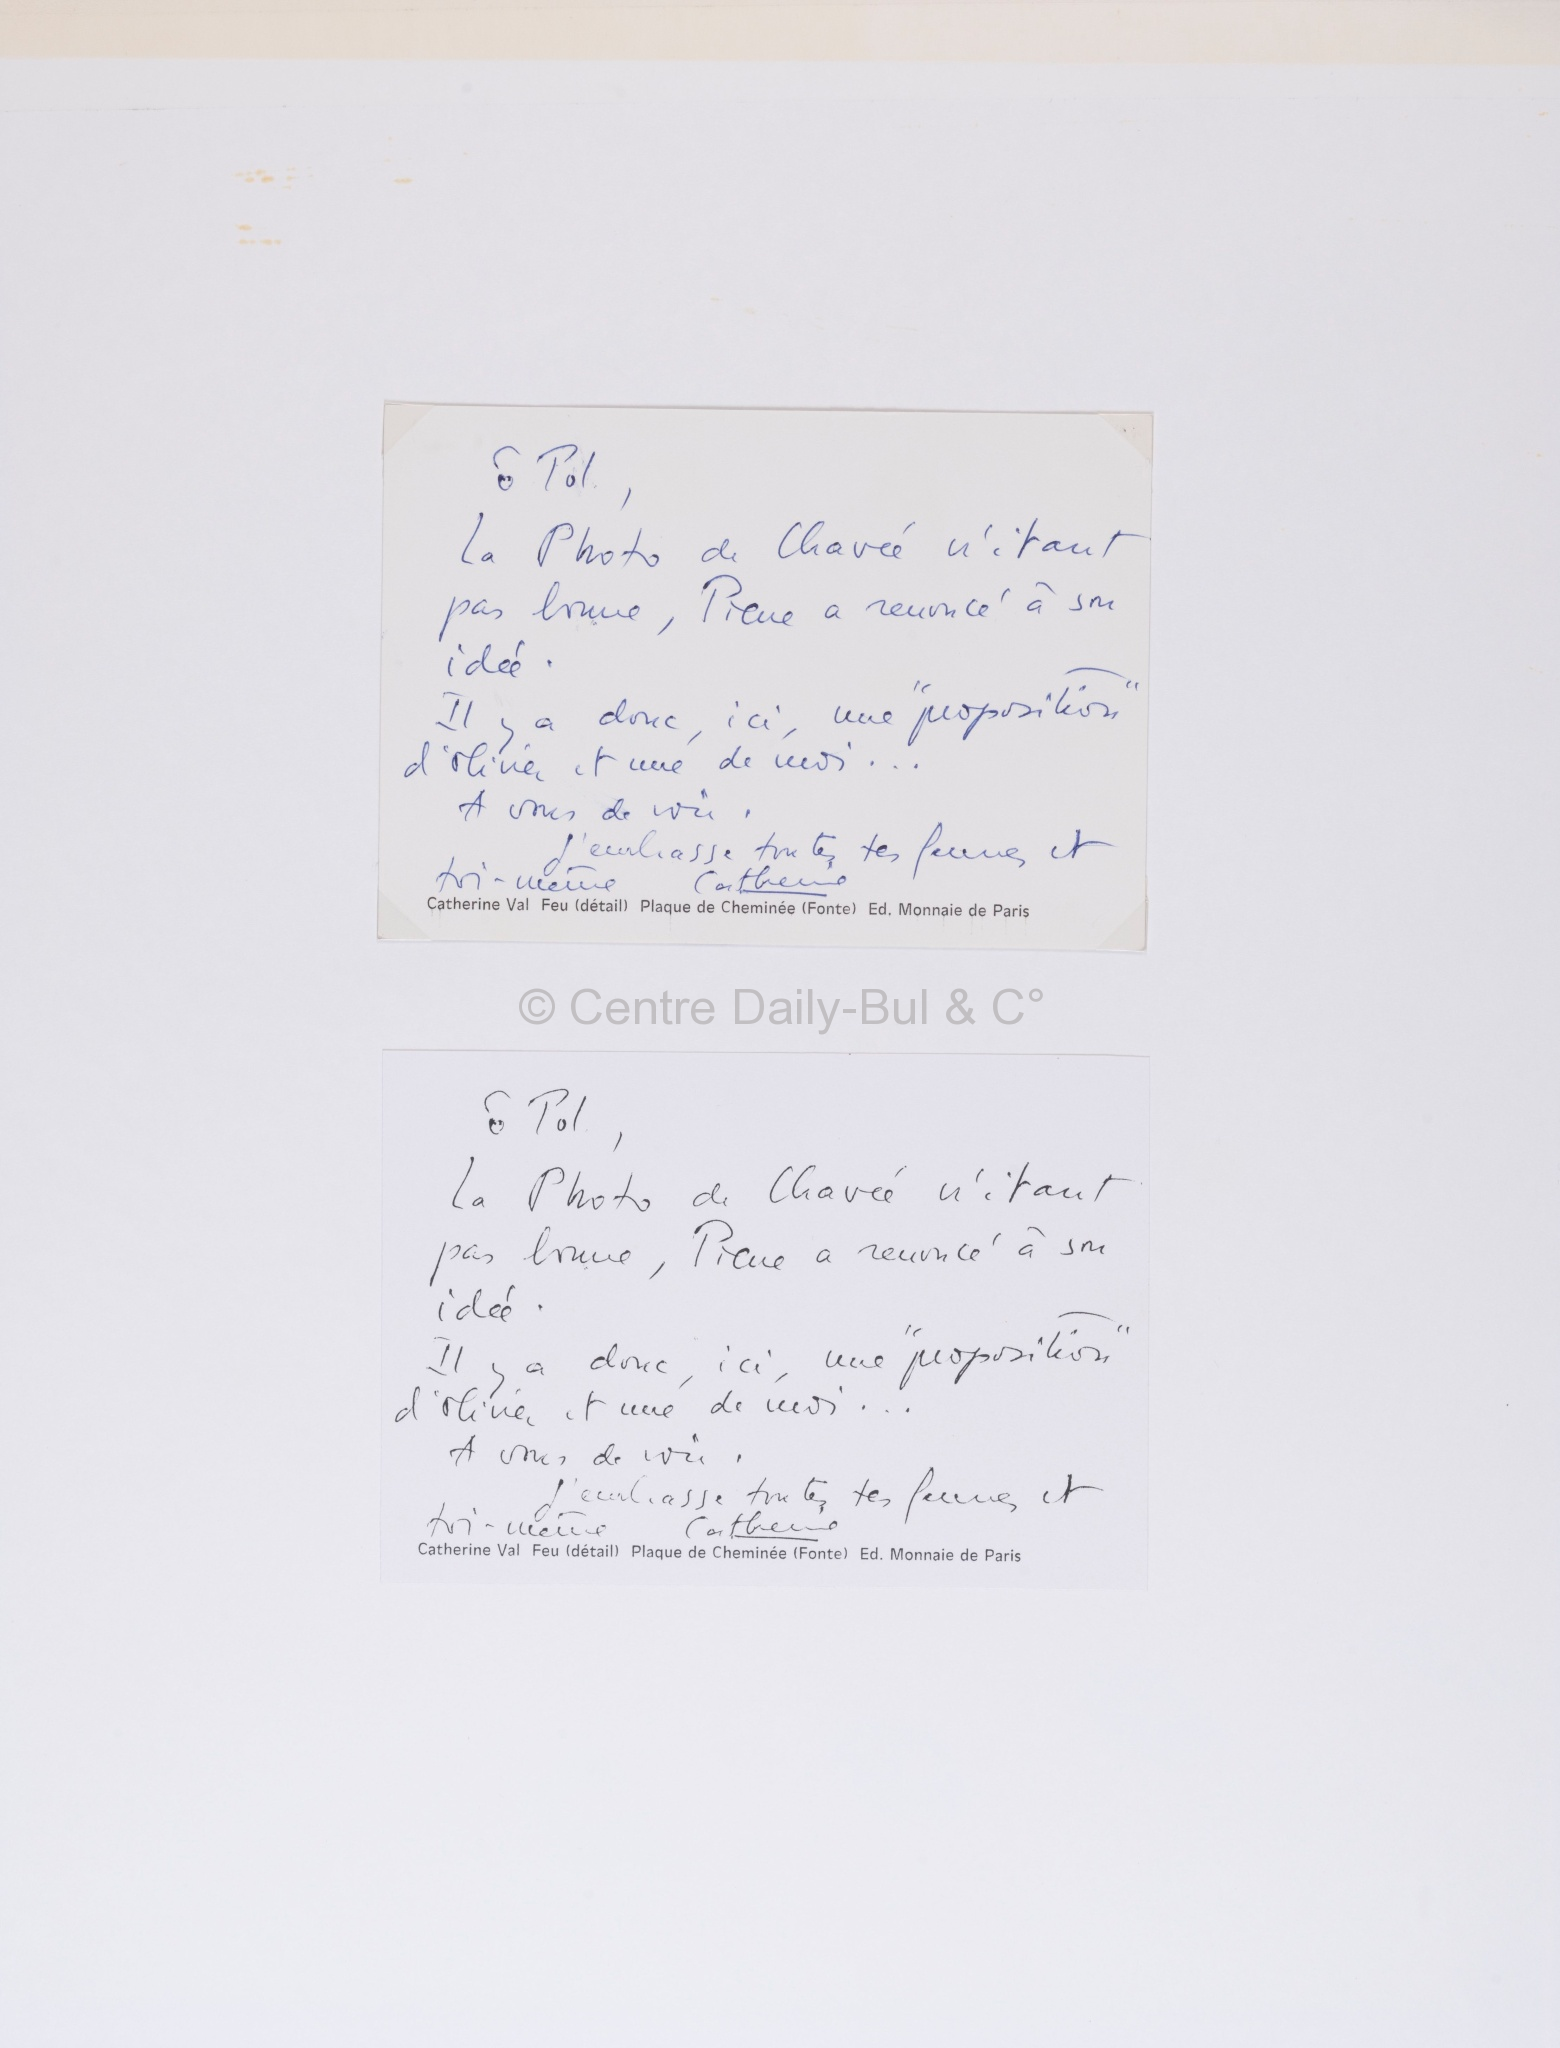 ô Pol,
La Photo de Chavée n'étant
pas bonne, Pierre a renoncé à son
idée.
Il y a donc, ici, une "proposition"
d'Olivier et une de moi...
A vous de voir.
J'embrasse toutes tes femmes et
toi-même Catherine
Catherine Val Feu (détail) Plaque de Cheminée (Fonte) Ed. Monnaie de Paris
© Centre Daily-Bul & C°
ô Pol,
La Photo de Chavée n'étant
pas bonne, Pierre a renoncé à son
idée.
Il y a donc, ici, une "proposition"
d'Olivier et une de moi...
A vous de voir.
J'embrasse toutes tes femmes et
toi-même Catherine
Catherine Val Feu (détail) Plaque de Cheminée (Fonte) Ed. Monnaie de Paris